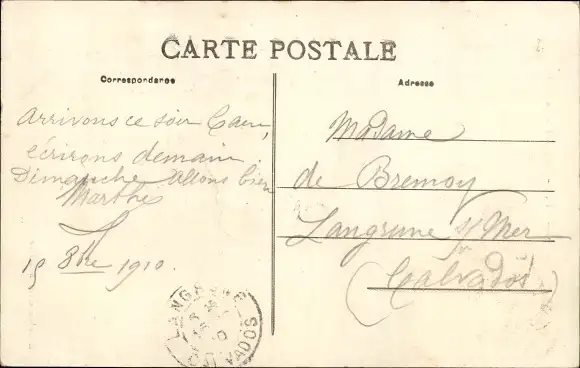 CARTE POSTALE
Correspondance
Adresse
Arrivons ce soir Caen,
écrirons demain
Dimanche Allons bien
Marthe
19 8bre 1910.
Madame
de Bremoy
Langrune s/ Mer
(Calvados)
LANGRUNE
CALVADOS